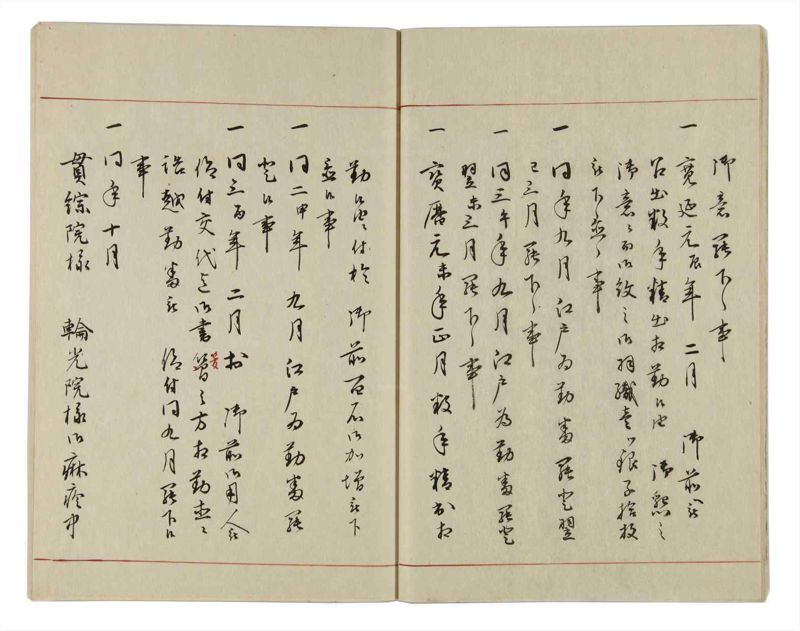 御意罷下候事
一 寛延元辰年 二月 御前被
召出数年精出相勤候由 御懇之
御意之而御紋之御羽織壱ツ銀子拾枚
被下置候事
一 同年九月江戸為勤番罷登翌
巳三月罷下候事
一 同三午年九月江戸為勤番罷登
翌未三月罷下候事
一 宝暦元未年正月数年精出相
勤候ニ付於 御前百石御加増被下
置候事
一 同二申年 九月江戸為勤番罷
登候事
一 同三酉年 二月於 御前御用人被
仰付交代迄御書 之方相勤直ニ
詰越勤番被 仰付同九月罷下候
事
一 同年十月
貫綜院様 輪光院様御麻疹中